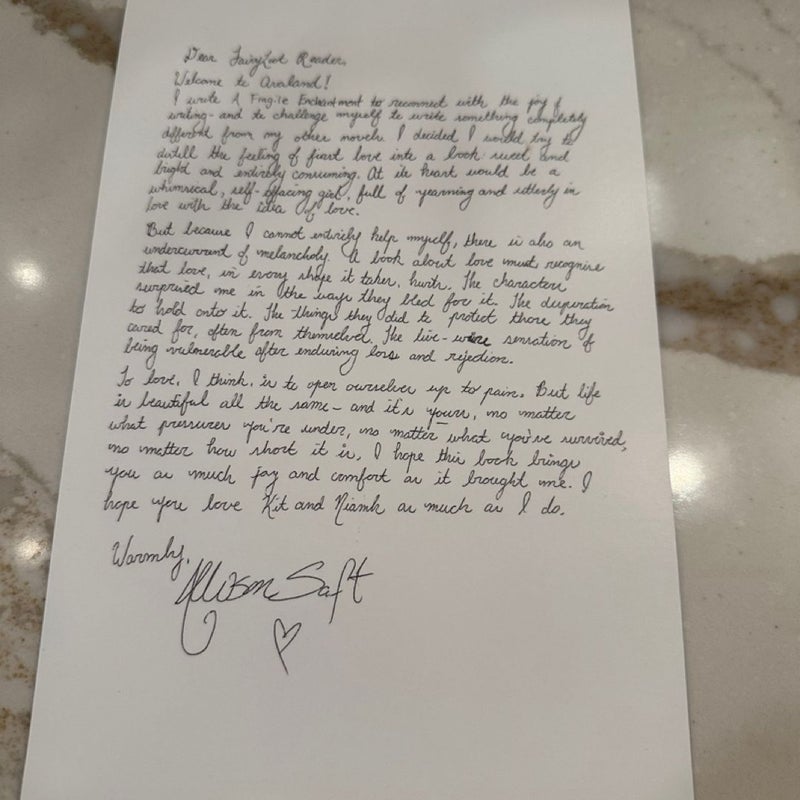 Dear FairyLoot Reader,
Welcome to Avaland!
I wrote A Fragile Enchantment to reconnect with the joy of
writing - and to challenge myself to write something completely
different from my other novels. I decided I would try to
distill the feeling of first love into a book: sweet and
bright and entirely consuming. At its heart would be a
whimsical, self-effacing girl, full of yearning and utterly in
love with the idea of love.
But because I cannot entirely help myself, there is also an
undercurrent of melancholy. A book about love must recognize
that love, in every shape it takes, hurts. The characters
surprised me in the ways they bled for it. The desperation
to hold onto it. The things they did to protect those they
cared for, often from themselves. The live-wire sensation of
being vulnerable after enduring loss and rejection.
To love, I think, is to open ourselves up to pain. But life
is beautiful all the same - and it's yours, no matter
what pressures you're under, no matter what you've survived,
no matter how short it is. I hope this book brings
you as much joy and comfort as it brought me. I
hope you love Kit and Niamh as much as I do.
Warmly,
Allison Saft